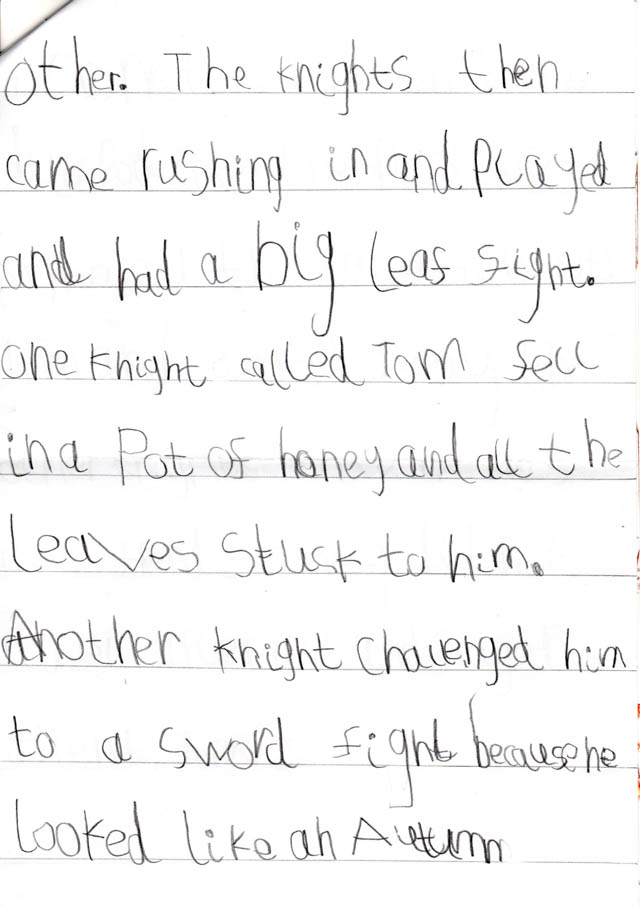 other. The knights then
came rushing in and Played
and had a big leaf fight.
one knight called Tom fell
in a Pot of honey and all the
leaves Stusk to him.
Another knight challenged him
to a sword fight because he
looked like an Autumn